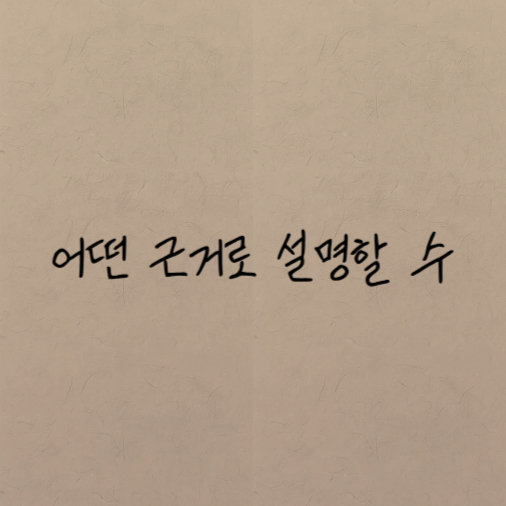 어떤 근거로 설명할 수